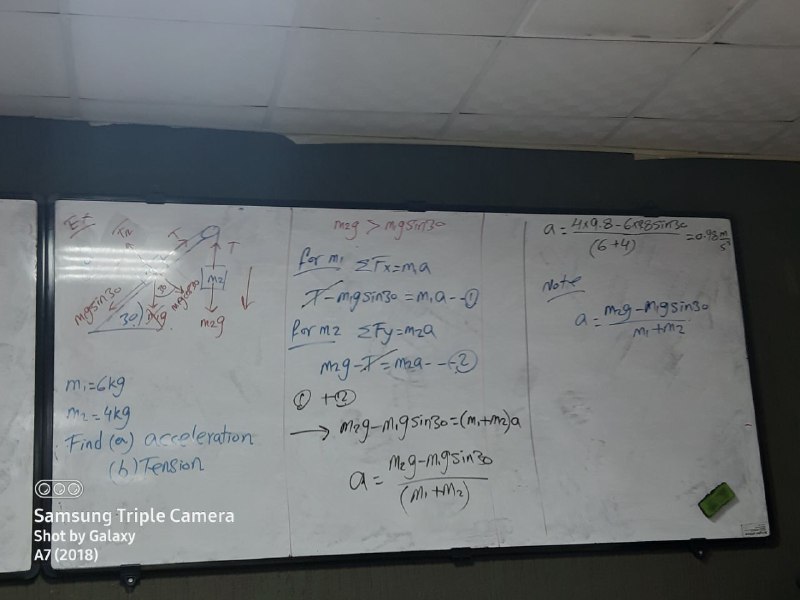 Ex
FN
T
T
m2
m1gsin30
30
m1gcos30
30
m1g
m2g
m1=6kg
m2=4kg
Find (a) acceleration
(b) Tension
m2g > m1gsin30
for m1 ΣFx=m1a
T-m1gsin30=m1a--①
for m2 ΣFy=m2a
m2g-T=m2a--②
①+②
→ m2g-m1gsin30=(m1+m2)a
a = m2g-m1gsin30
(m1+m2)
a = 4x9.8-6x9.8sin30 = 0.98 m/s²
(6+4)
Note
a = m2g-m1gsin30
m1+m2
Samsung Triple Camera
Shot by Galaxy
A7 (2018)